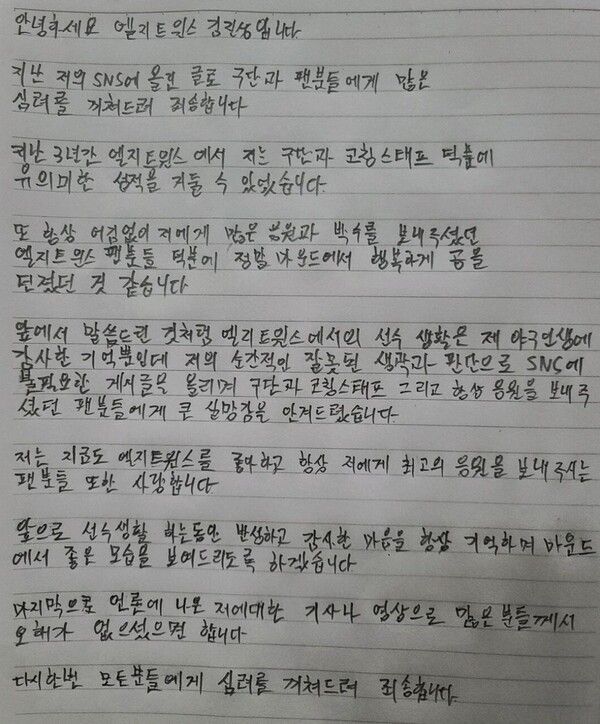 안녕하세요 엘지트윈스 김진성입니다
지난 저의 SNS에 올린 글로 구단과 팬분들에게 많은
심려를 끼쳐드려 죄송합니다
지난 3년간 엘지트윈스에서 저는 구단과 코칭스태프 덕분에
유의미한 성적을 거둘 수 있었습니다.
또 항상 어김없이 저에게 많은 응원과 박수를 보내주셨던
엘지트윈스 팬분들 덕분에 정말 마운드에서 행복하게 공을
던졌던 것 같습니다
앞에서 말씀드린 것처럼 엘리트윈스에서의 선수 생활은 제 야구인생에
감사한 기억뿐인데 저의 순간적인 잘못된 생각과 판단으로 SNS에
불필요한 게시글을 올리며 구단과 코칭스태프 그리고 항상 응원을 보내주
셨던 팬분들에게 큰 실망감을 안겨드렸습니다.
저는 지금도 엘지트윈스를 좋아하고 항상 저에게 최고의 응원을 보내주시는
팬분들 또한 사랑합니다
앞으로 선수생활 하는동안 반성하고 감사한 마음을 항상 기억하며 마운드
에서 좋은 모습을 보여드리도록 하겠습니다
마지막으로 언론에 나온 저에대한 기사나 영상으로 많은분들께서
오해가 없으셨으면 합니다
다시한번 모든분들에게 심려를 끼쳐드려 죄송합니다.